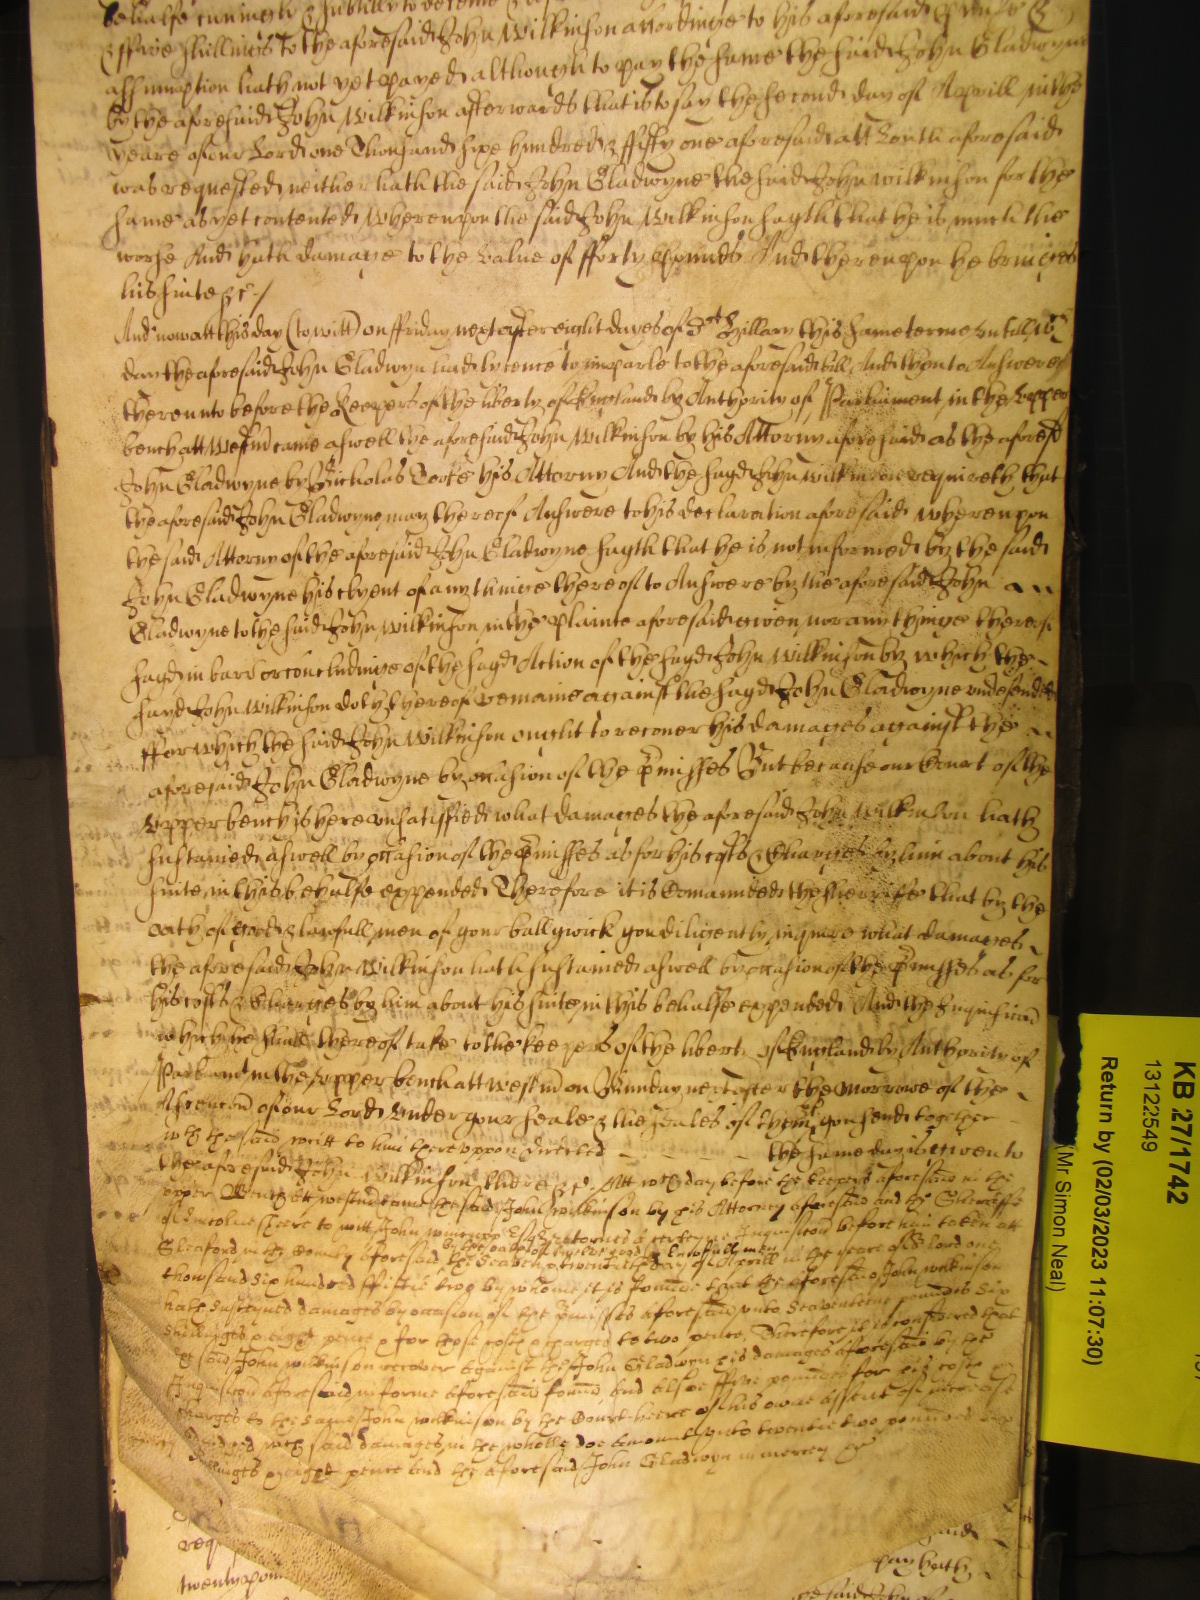 behalfe cuningly & subtilly to deceive &
& ffive shillings to the aforesaid John Wilkinson accordinge to his aforesaid &
assumption hath not yet payed although to pay the same the said John Gladwyne
by the aforesaid John Wilkinson afterwards that is to say the second day of Aprill in the
yeare of our Lord one Thousand sixe hundred & ffifty one aforesaid att Louth aforesaid
was requested neither hath the said John Gladwyne the said John Wilkinson for the
same as yet contented Whereupon the said John Wilkinson sayth that he is much the
worse And hath damage to the value of fforty pounds And thereupon he bringes
his suite &c /
And now att this day (to witt) on ffriday next after eight dayes of St Hillary this same terme untill wch
day the aforesaid John Gladwyn had lycence to imparle to the aforesaid bill And then to Answere
thereunto before the Keepers of the liberty of England by Authority of Parliament in the Upper
bench att Westm came aswell the aforesaid John Wilkinson by his Attorny aforesaid as the aforesd
John Gladwyne by Nicholas Cooke his Attorny And the sayd John Wilkinson requireth that
the aforesaid John Gladwyne may thereof Answere to his declaration aforesaid Whereupon
the said Attorny of the aforesaid John Gladwyne sayth that he is not informed by the said
John Gladwyne his clyent of any thinge thereof to Answere by the aforesaid John
Gladwyne to the said John Wilkinson in the plainte aforesaid given nor any thinge thereof
sayd in barr or concludinge of the sayd Action of the sayd John Wilkinson by which the
sayd John Wilkinson doth thereof remaine against the sayd John Gladwyne undefended
ffor which the said John Wilkinson ought to recover his damages against the
aforesaid John Gladwyne by occasion of the pmisses But because our Court of the
Upper bench is here unsatisfied what damages the aforesaid John Wilkinson hath
sustained aswell by occasion of the pmisses as for his costs & Charges by him about his
suite in this behalfe expended Therefore it is Comannded the sherriffe that by the
oath of good & lawfull men of your ballywick you diligently inquire what damages
the aforesaid John Wilkinson hath sustained aswell by occasion of the pmisses as for
his costs & Charges by him about his suite in this behalfe expended And the Inquisicon
which he shall thereof take to the keepers of the liberty of England by Authority of
Parliamt in the upper bench att Westm on Munday next after the Morrowe of the
Ascencon of our Lord under your seale & the seales of them &c you send together
wth the said writt to him thereuppon directed the same day is given to
the aforesaid John Wilkinson there &c. Att wch day before the keepers aforesaid in the
upper Bench att westm came the said John Wilkinson by his Attorney aforesaid and the Sherriffe
of Lincolne sheere to witt John Esqr retorned a certeyne Inquisicon before him taken att
Sleaford in the County aforesaid the seaven & twentieth day of Aprill in the yeare of or lord one
by the oath of twelve good & lawfull men
thowsand six hundred ffiftie two by whome it is found that the aforesaid John wilkinson
hath susteyned damages by occasion of the pmisses aforesaid unto seaventeene pounds six
shillings & eight pence & for those costs & charges to two pence, Therefore it is considered that
the said John wilkinson recover against the John Gladwyn his damages aforesaid by the
Inquisicon aforesaid in forme aforesaid found And alsoe ffive pounds for his costs &
charges to the same John wilkinson by the Court heere of his owne assent of increase
adjudged wch said damages in the wholle doe amount unto twentie two pounds six
shillings & eight pence and the aforesaid John Gladwyn in mercy &c
req
said
pay hath
twenty poun
KB 27/1742
13122549
Return by (02/03/2023 11:07:30)
(Mr Simon Neal)